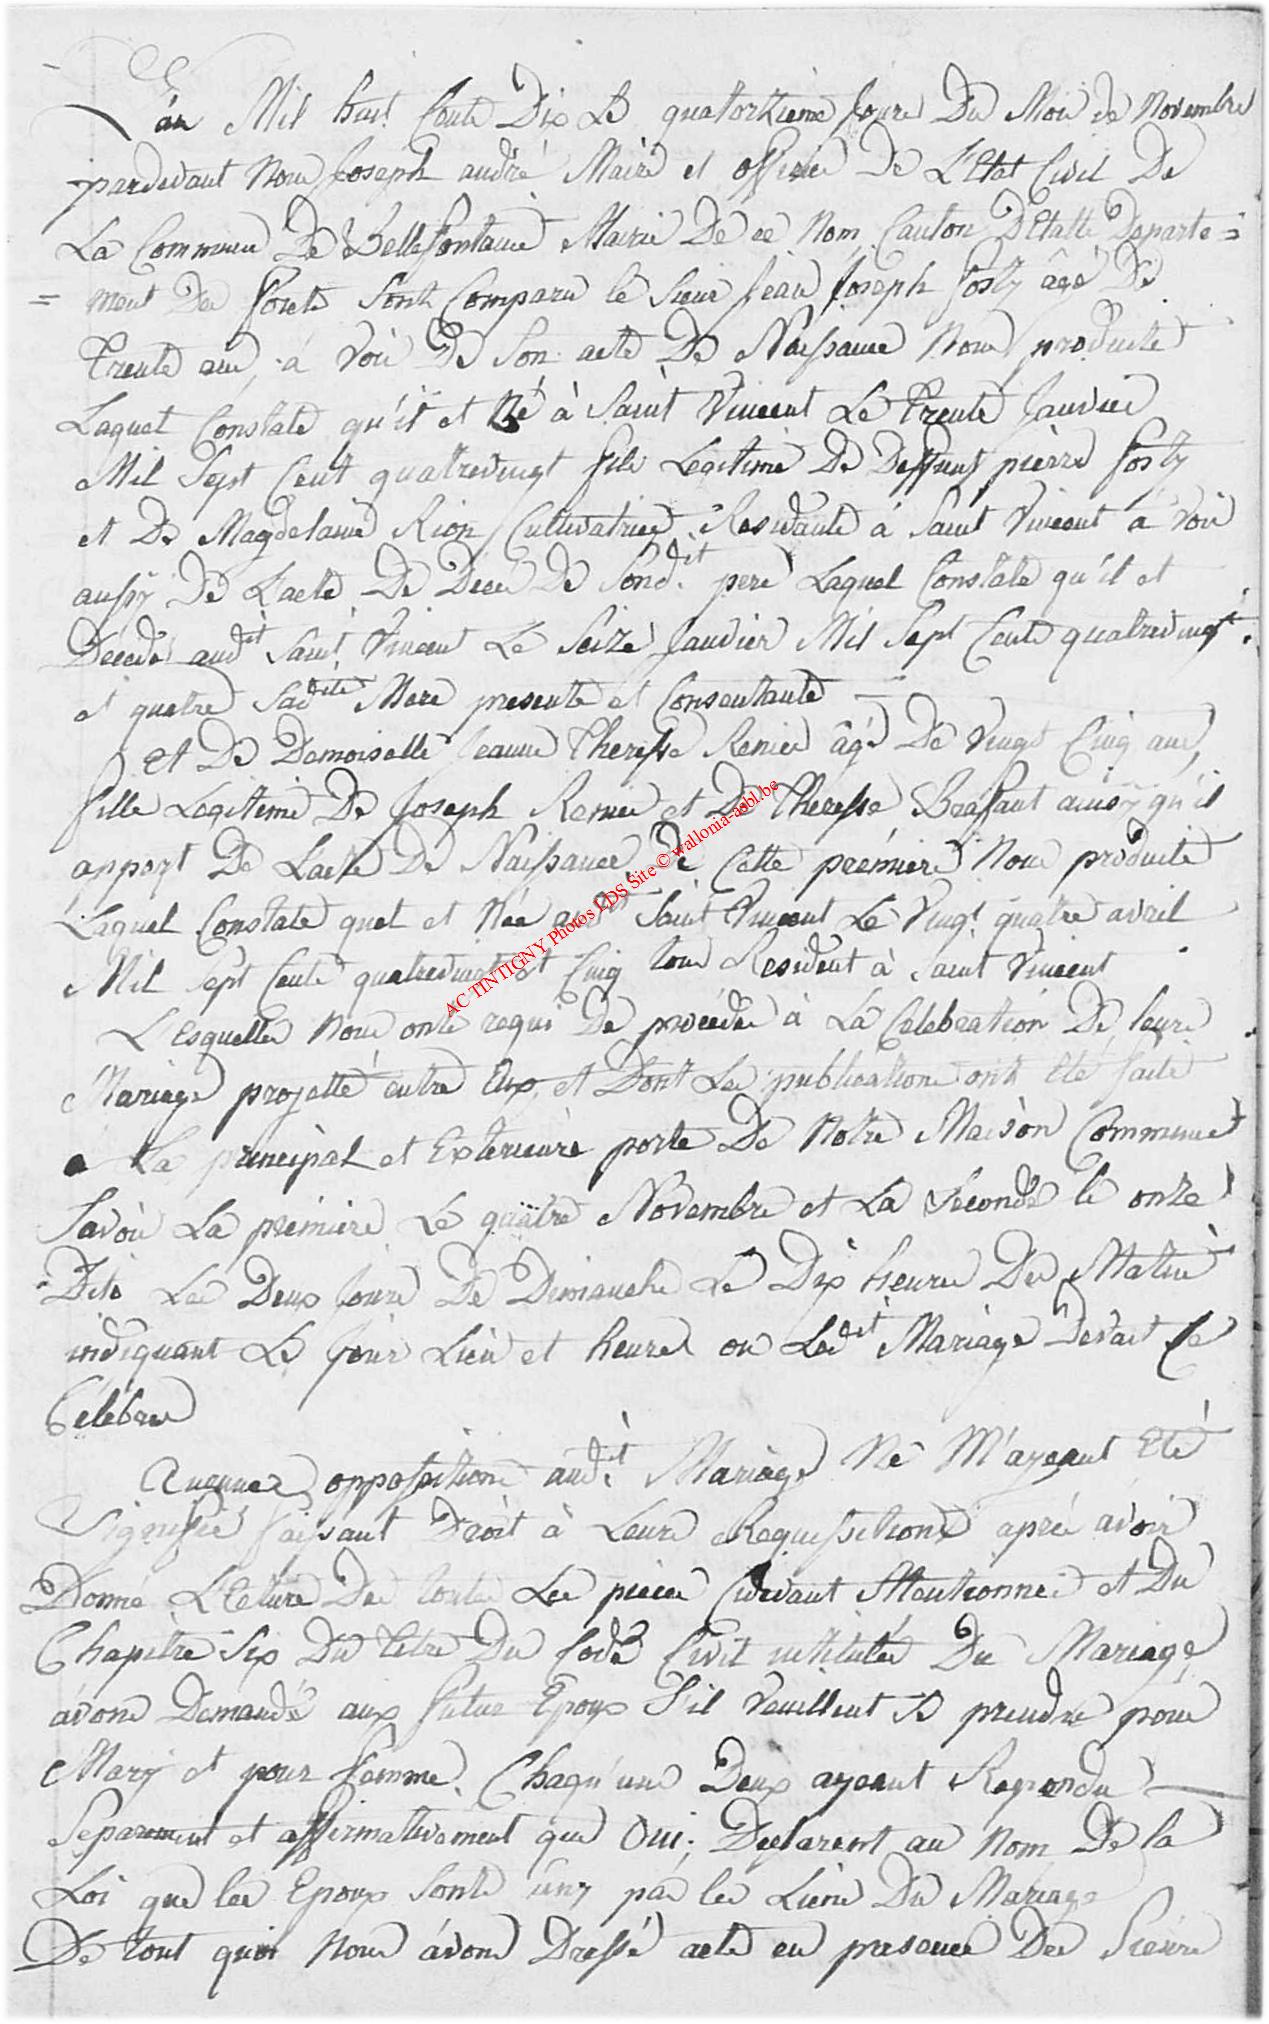 L'an Mil huit Cents Dix Le quatorzième Jours Du Mois de Novembre
pardevant Nous Joseph andré Maire et officier De L'Etat Civil De
La Commune De Bellefontaine Mairie De ce Nom Canton D'Etalle Departe =
= ment Des Forets Sonts Comparu le Sieur Jean Joseph Fosty âgé De
Trente ans, à Voir De Son acte De Naissance Nous produite
Laquel Constate qu'il et Né à Saint Vincent Le Trente Janvier
Mil Sept Cent quatrevingt fils Legitime De Deffunt pierre Fosty
et De Magdelaine Rion Cultivatrice Residante à Saint Vincent a Voir
aussy De L'acte De Décé De Sond.it pere Laquel Constate qu'il et
Décédé audit Saint Vincent Le Seize Janvier Mil Sept Cents quatrevingt
et quatre Sadite Mere presente et Consentante
et De Demoiselle Jeanne Theresse Renier âgé De Vingt Cinq ans,
fille Legitime De Joseph Renier et De Theresse Brassant ainsy qu'il
apport De Lacte De Naissance De Cette première Nous produite
Laquel Constate quel et Née audit Saint Vincent Le Vingt quatre avril
Mil Sept Cents quatrevingt et Cinq tous Resident à Saint Vincent
L'Esquelles Nous onts requis De procéder à La Celebration De leurs
Mariage projetté entre Eux et Dont Les publications onts Eté faite
La principal et Exterieure porte De Notre Maison Commune
Savoir La première Le quatre Novembre et La Seconde le onze
Dito Les Deux Jours De Dimanche Le Dix heures Du Matin
indiquant Le Jour Lieu et heures ou Ledit Mariage Devait Ce
Célébrer
Aucunes oppossitions audit Mariage Ne M'ayeant Eté
Signifié faissant Droit à Leurs Requissitions après avoir
Donné L'Ecture De toutes Les pièces Cidevant Mentionnée et Du
Chapitre Six Du titre Du Code Civil intitulés Du Mariage,
avons Demandé aux futur Epoux S'il Veuillent Se prendre pour
Mary et pour femme. Chaqu'uns Deux ayeant Repondu
Separement et affirmativement que Oui; Declarent au Nom De la
Loi que les Epoux Sonts uny par les Liens Du Mariage
De tout quoi Nous avons Dressé acte en presence Des Sieurs
AC TINTIGNY Photos LDS Site © wallonia-asbl.be